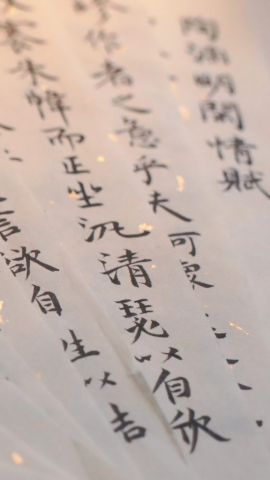 陶淵明閑情賦
作者之意乎夫可
褰朱幃而正坐汎清瑟以自欣
言欲自生以吉